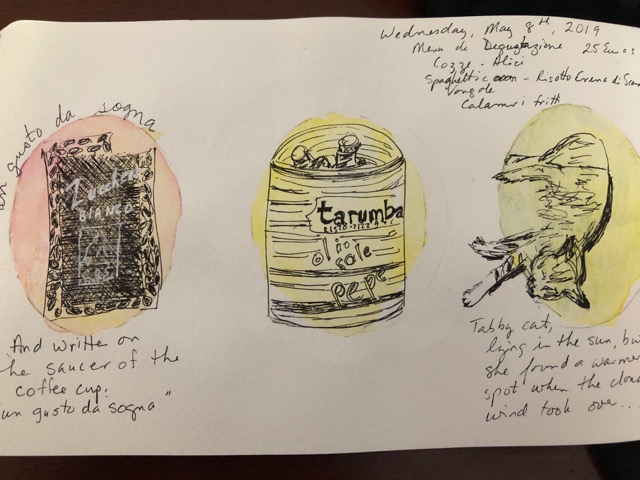 Wednesday, May 8th, 2019
Menu de Degustazione 25 Euros
Cozze - Alici
Spaghetti con - Risotto Crema di Scam
Vongole
Calamari fritti
un gusto da sogna
BIANCO
tarumba
olio
sale
pepe
And written on
the saucer of the
coffee cup.
"un gusto da sogna"
Tabby cat,
lying in the sun, but
she found a warmer
spot when the cloud
wind took over...